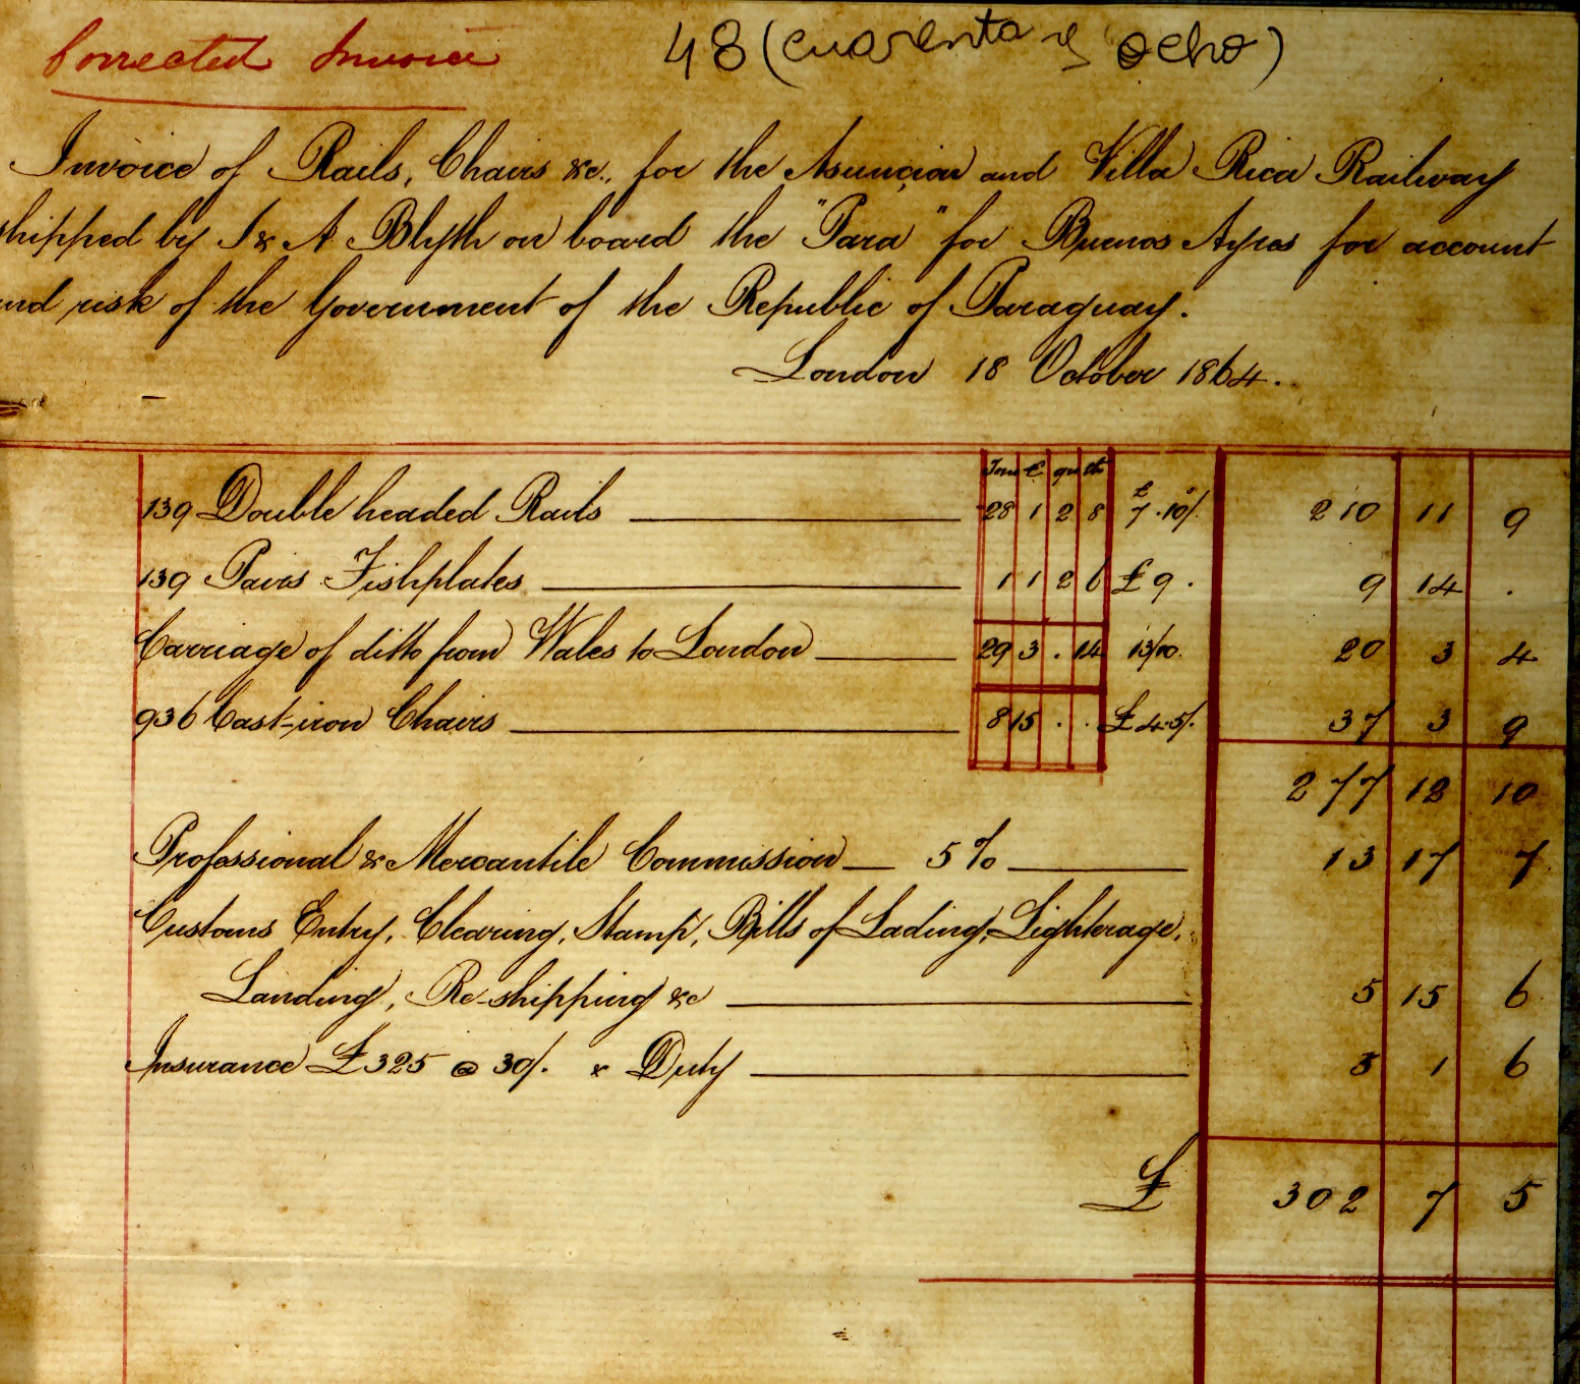 Corrected Invoice
48 (cuarenta y ocho)
Invoice of Rails, Chairs &c., for the Asunçion and Villa Rica Railway
shipped by J & A Blyth on board the "Para" for Buenos Ayres for account
and risk of the Government of the Republic of Paraguay.
London 18 October 1864.
Tons C qrs lbs
139 Double headed Rails 28 1 2 8 £7.10/. 210 11 9
139 Pairs Fishplates 1 1 2 6 £9. 9 14 .
Carriage of ditto from Wales to London 29 3 . 14 13/10. 20 3 4
936 Cast-iron Chairs 8 15 . . £4.5/. 37 3 9
277 12 10
Professional & Mercantile Commission 5% 13 17 7
Customs Entry, Clearing, Stamp, Bills of Lading, Lighterage,
Landing, Re-shipping &c 5 15 6
Insurance £325 @ 30/. & Duty 5 1 6
£ 302 7 5